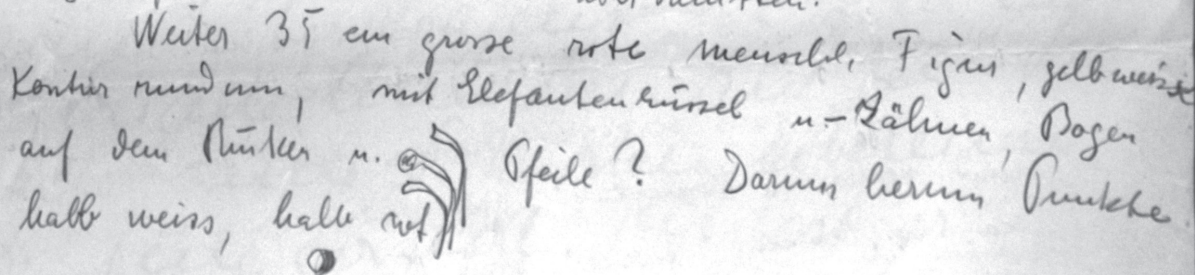 Weiter 35 ein grosse rote menschl. Figur, gelbweisse
Kontur rundum, mit Elefantenrüssel u-Zähnen, Bogen
auf dem Rücken u. Pfeile? Darum herum Punkte
halb weiss, halb rot